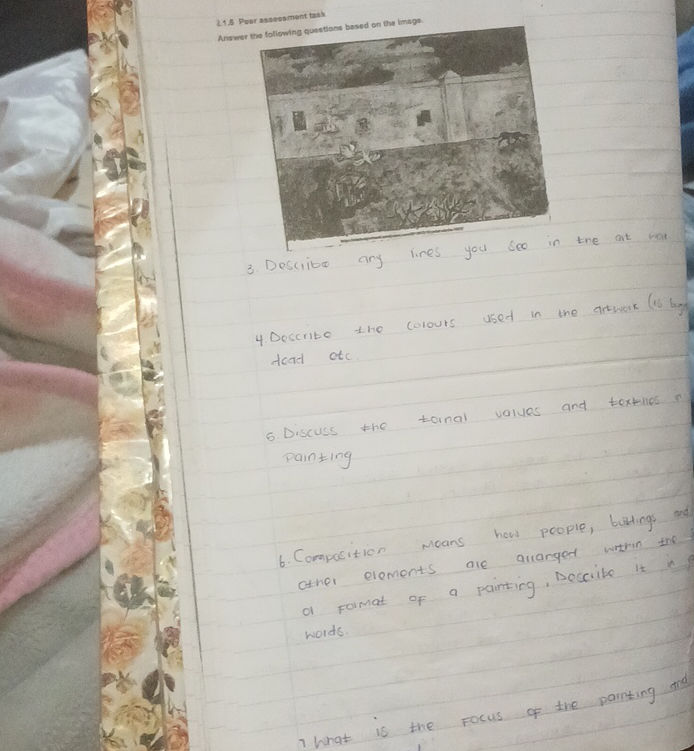 L1.6 Peer assessment task
Answer the following questions based on the image.
3. Describe any lines you see in the art
4 Describe the colours used in the artwork (is
dead etc.
5. Discuss the toinal values and
painting
6. Composition means how people, buildings and
other elements are arranged within the
a format of a painting. Describe it in
words.
7 What is the focus of the painting and